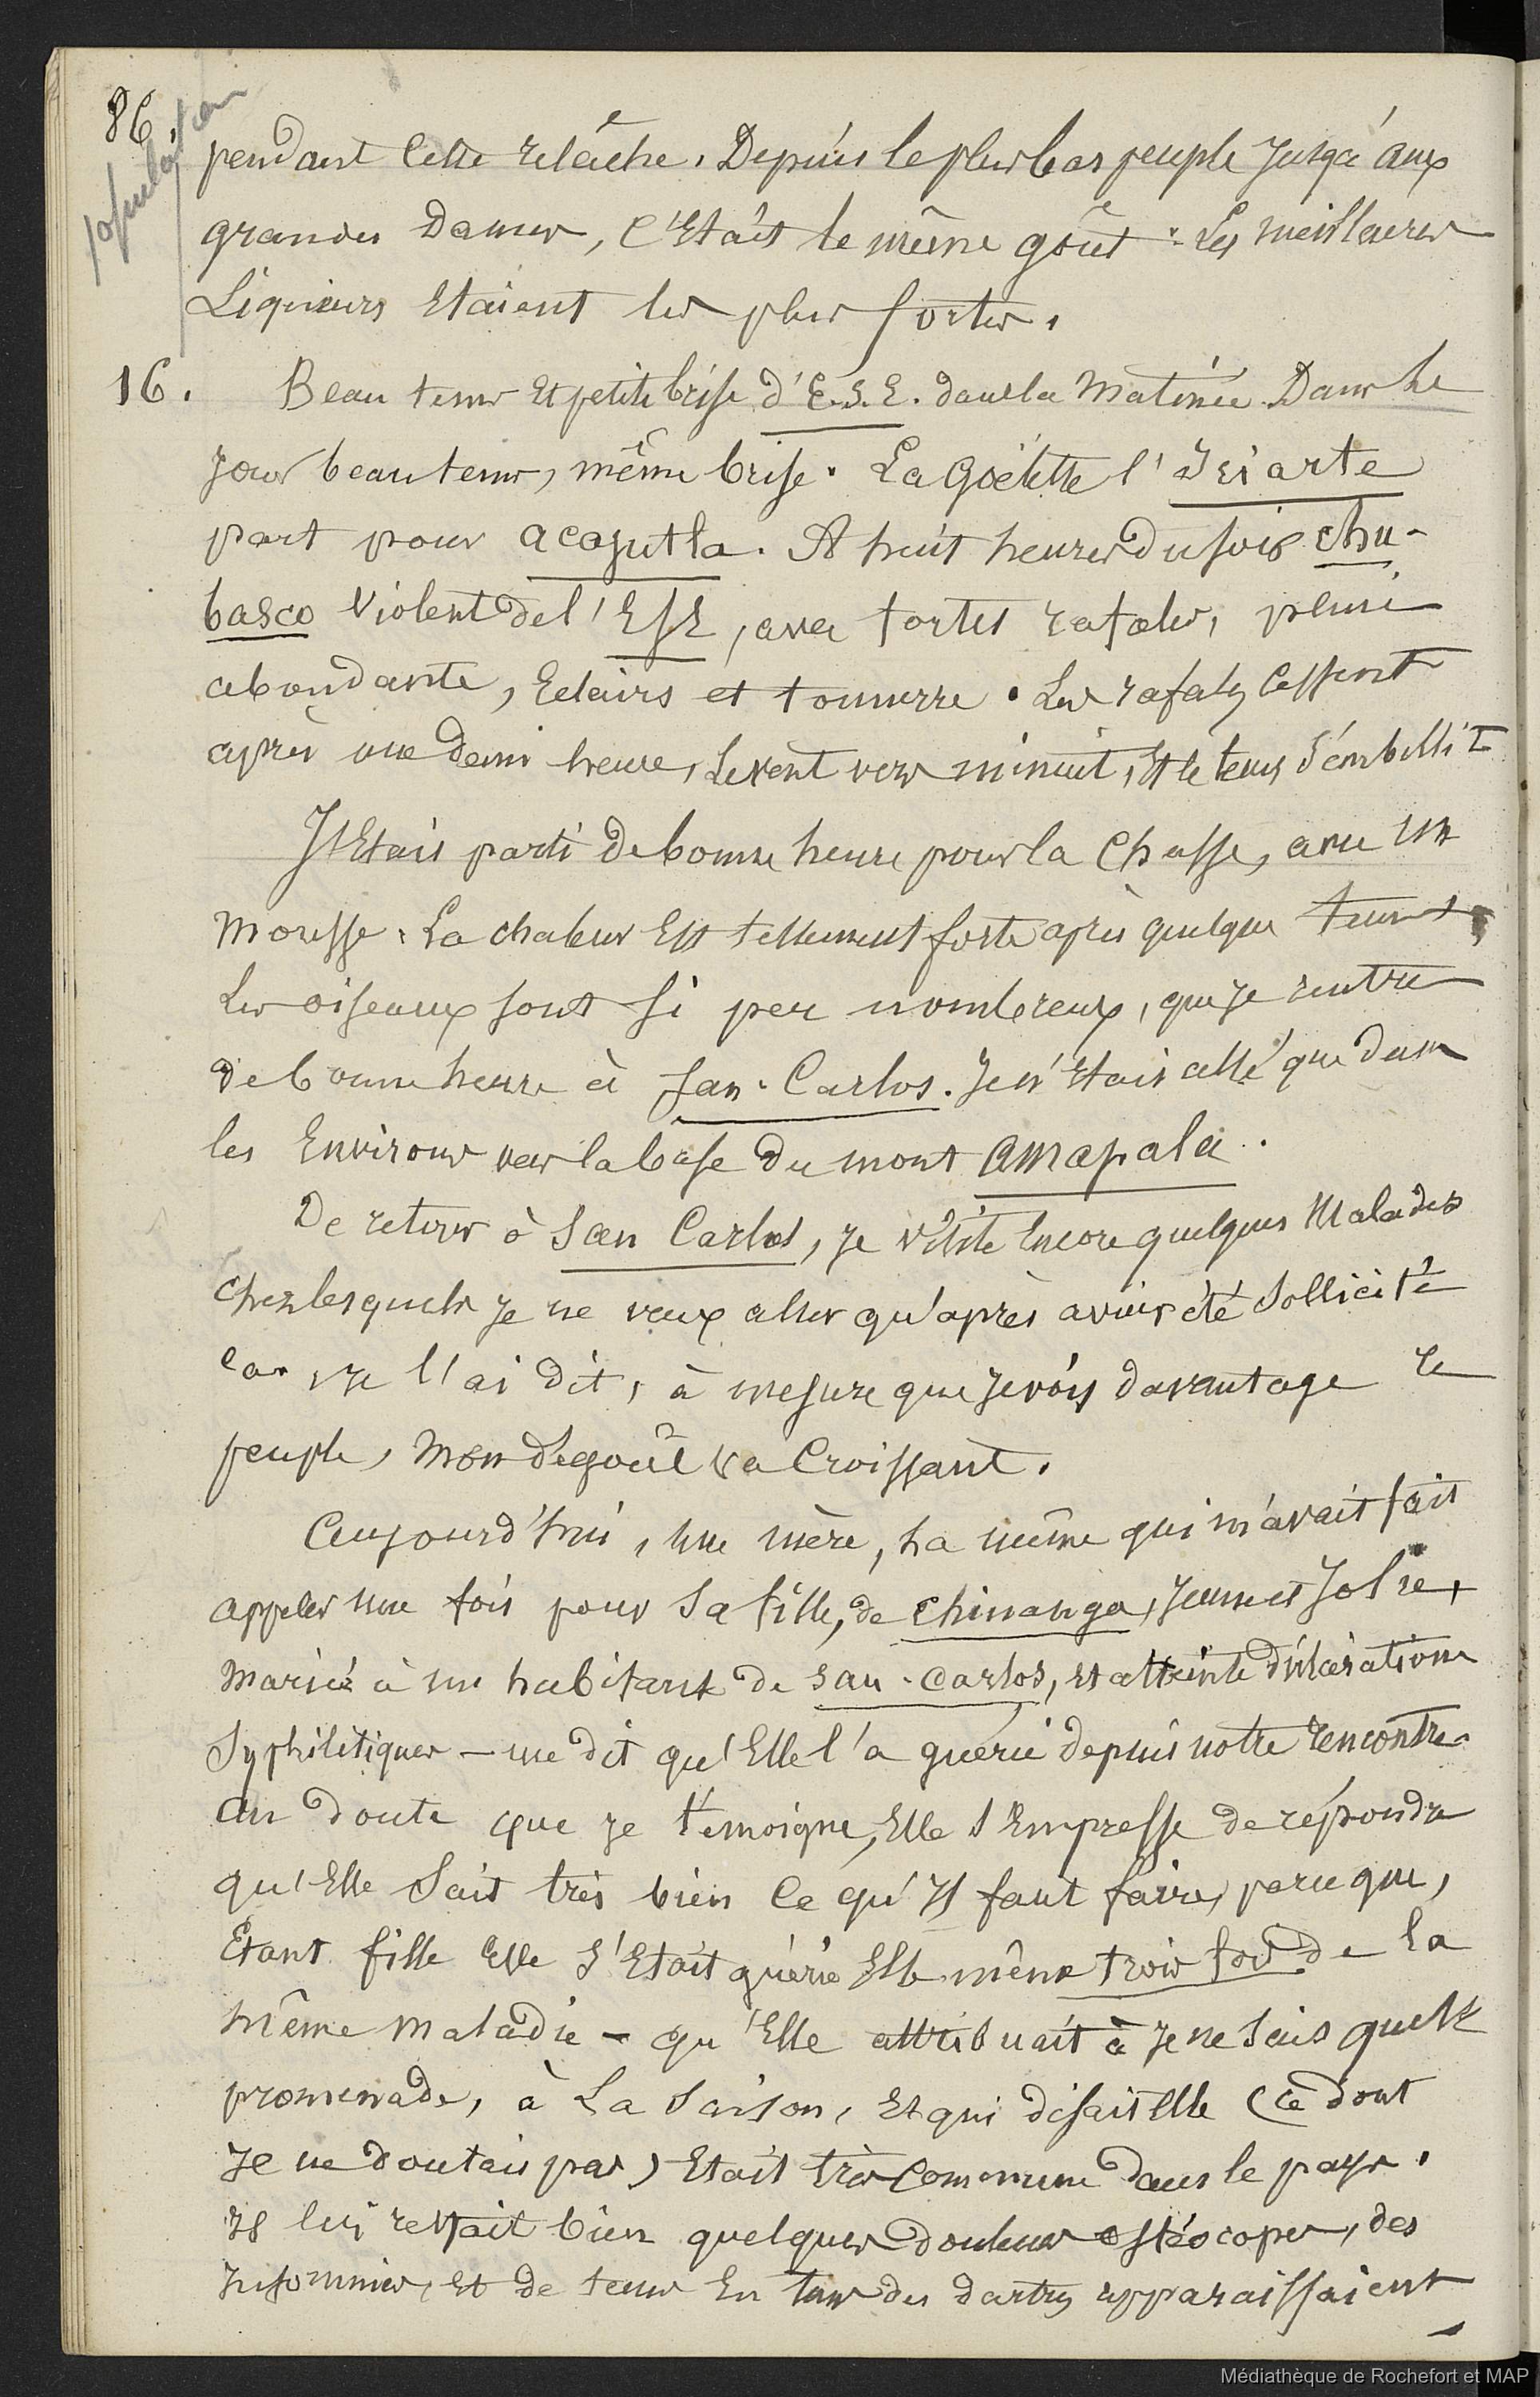 86.
population
pendant cette relâche. Depuis le plus bas peuple jusqu'aux
grandes Dames, c'Etait le même goût : Les meilleures
Liqueurs Etaient les plus fortes.
16. Beau tems Et petite brise d'E.S.E. dans la Matinée. Dans le
jour beau tems, même brise. La Goëlette l'Iriarte
part pour acajutla. A huit heures du soir chu-
basco Violent de l'ESE, avec fortes rafales, pluie
abondante, Eclairs et tonnerre. Les rafales cessent
après une demi heure, Le vent vers minuit, Et le tems s'embellit
J'Etais parti de bonne heure pour la Chasse, avec un
Mousse. La chaleur Est tellement forte après quelque tems,
Les oiseaux sont si peu nombreux, que je rentre
de bonne heure à San-Carlos. Je n'Etais allé que dans
les Environs vers la base du mont amapala.
De retour à San Carlos, je visite Encore quelques Malades
chez lesquels je ne veux aller qu'après avoir été sollicité
car, je l'ai dit, à mesure que je vois davantage ce
peuple, Mon dégoût va Croissant.
Aujourd'hui, une mère, la même qui m'avait fait
appeler une fois pour sa fille, de Chinanga, jeune et Jolie,
Mariée à un habitant de San-Carlos, et atteinte d'ulcérations
Syphilitiques — me dit qu'Elle l'a guérie depuis notre rencontre.
au doute que je témoigne, Elle s'Empresse de répondre
qu'Elle Sait très bien Ce qu'Il faut faire, parce que,
Etant fille Elle s'Etait guérie Elle même trois fois de la
même maladie — qu'Elle attribuait à je ne sais quelle
promenade, à La Saison, Et qui disait Elle (ce dont
Je ne doutais pas) Etait très Commune dans le pays.
Il lui restait bien quelques douleurs ostéocopes, des
Insomnies, et de tems En tems des dartres apparaissaient